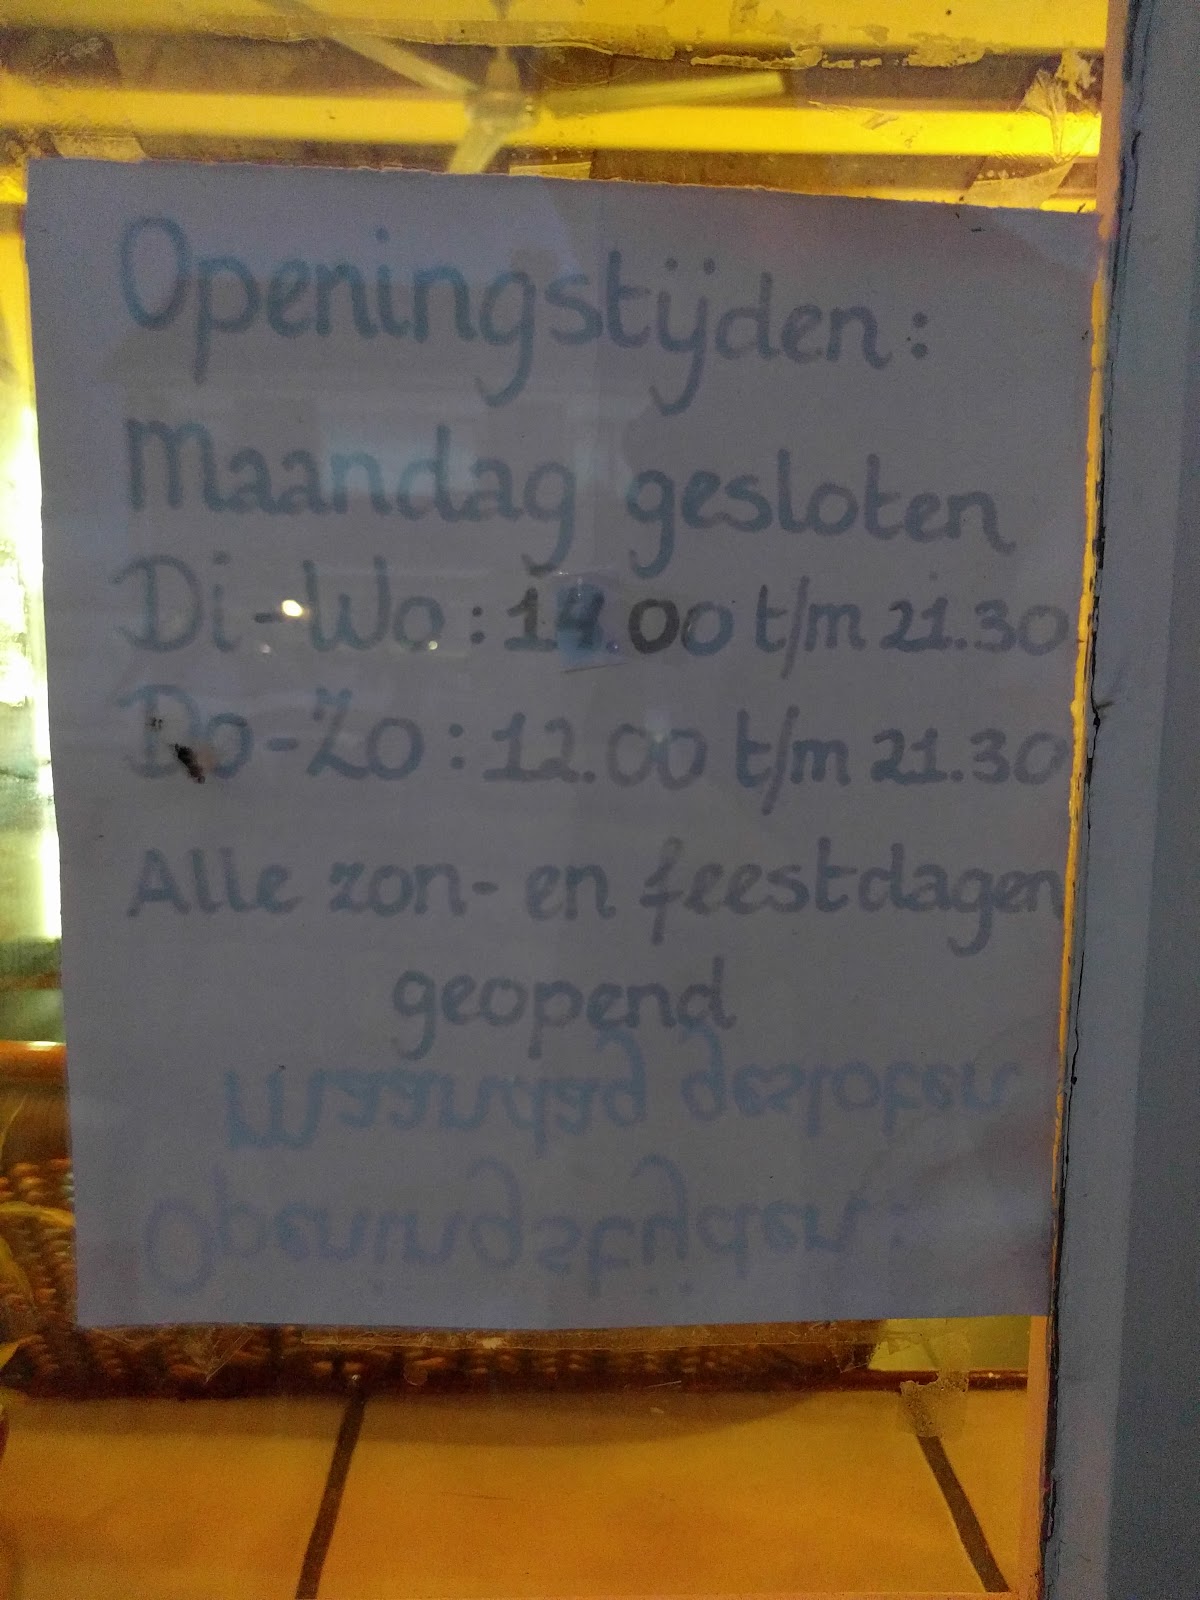 Openingstijden:
Maandag gesloten
Di-Wo: 14.00 t/m 21.30
Do-Zo: 12.00 t/m 21.30
Alle zon- en feestdagen
geopend
Maandag gesloten
Openingstijden: